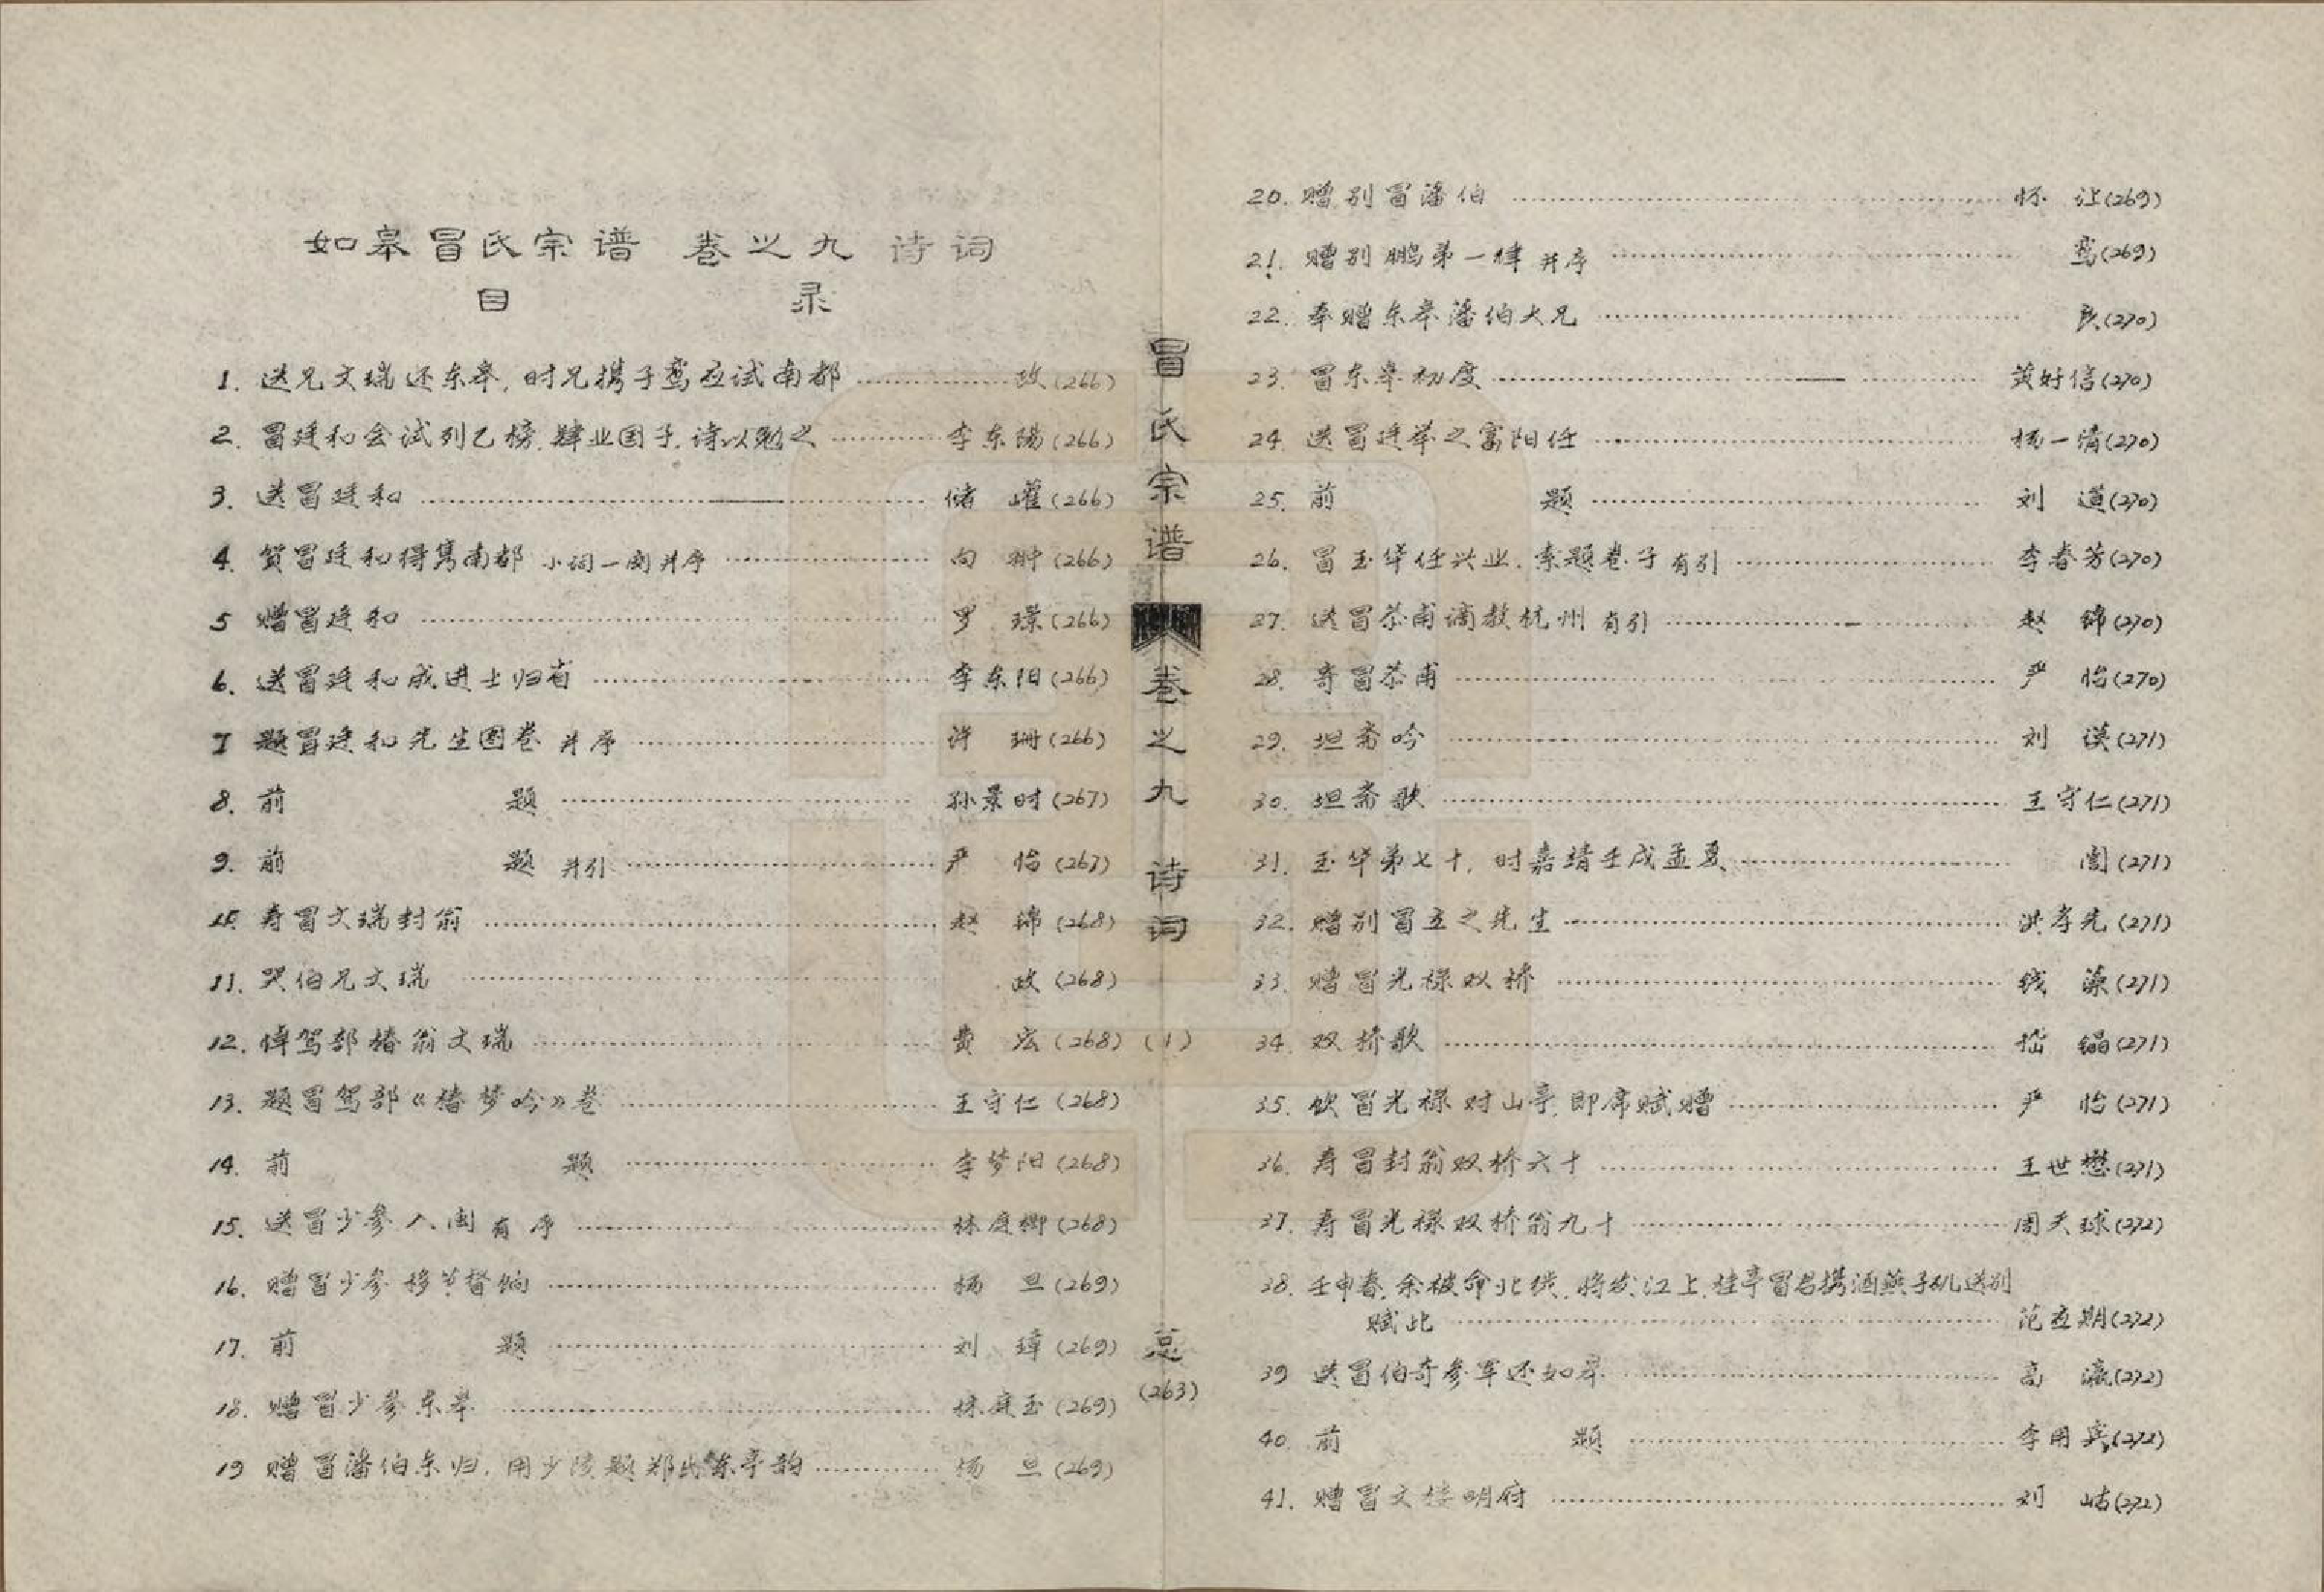 如皋冒氏宗谱 卷之九 诗词
目 录
1. 送兄文瑞还东皋,时兄携子鸾应试南都 …… 政(266)
2. 冒廷和会试列乙榜,肄业国子,诗以勉之 …… 李东陽(266)
3. 送冒廷和 …… 储 巏(266)
4. 贺冒廷和得隽南都 小词一阕并序 …… 向 翀(266)
5 赠冒廷和 …… 罗 璟(266)
6. 送冒廷和成进士归省 …… 李东阳(266)
7 题冒廷和先生图卷 并序 …… 许 珊(266)
8. 前 题 …… 孙景时(267)
9. 前 题 并引 …… 严 怡(267)
10 寿冒文瑞封翁 …… 赵 锦(268)
11. 哭伯兄文瑞 …… 政(268)
12. 悼驾部椿翁文瑞 …… 费 宏(268)
13. 题冒驾部《椿梦吟》卷 …… 王守仁(268)
14. 前 题 …… 李梦阳(268)
15. 送冒少参入闽 有序 …… 林庭㭿(268)
16. 赠冒少参移节督饷 …… 杨 旦(269)
17. 前 题 …… 刘 璋(269)
18. 赠冒少参东皋 …… 林庭玉(269)
19 赠冒藩伯东归,用少陵题郑 亭韵 …… 杨 旦(269)
冒氏宗谱 卷之九 诗词
(1)
总
(263)
20. 赠别冒藩伯 …… 怀 让(269)
21. 赠别鹏弟一律 并序 …… 鸾(269)
22. 奉赠东皋藩伯大兄 …… (270)
23. 冒东皋初度 …… 黄好信(270)
24. 送冒廷举之富阳任 …… 杨一清(270)
25. 前 题 …… 刘 道(270)
26. 冒玉华任兴业,索题卷子 有引 …… 李春芳(270)
27. 送冒恭甫谪教杭州 有引 …… 赵 锦(270)
28. 寄冒恭甫 …… 严 怡(270)
29. 坦斋吟 …… 刘 谟(271)
30. 坦斋歌 …… 王守仁(271)
31. 玉华弟七十,时嘉靖壬戌孟夏 …… 訚(271)
32. 赠别冒立之先生 …… 洪孝先(271)
33. 赠冒光禄双桥 …… 钱 藻(271)
34. 双桥歌 …… 嵇 鎦(271)
35. 饮冒光禄对山亭,即席赋赠 …… 严 怡(271)
36. 寿冒封翁双桥六十 …… 王世懋(271)
37. 寿冒光禄双桥翁九十 …… 周天球(272)
38. 壬申春,余被命北徙,将发江上,桂亭冒君携酒燕子矶送别
赋此 …… 范应期(272)
39 送冒伯奇参军还如皋 …… 高 瀛(272)
40. 前 题 …… 李用宾(272)
41. 赠冒文楼明府 …… 刘 岵(272)